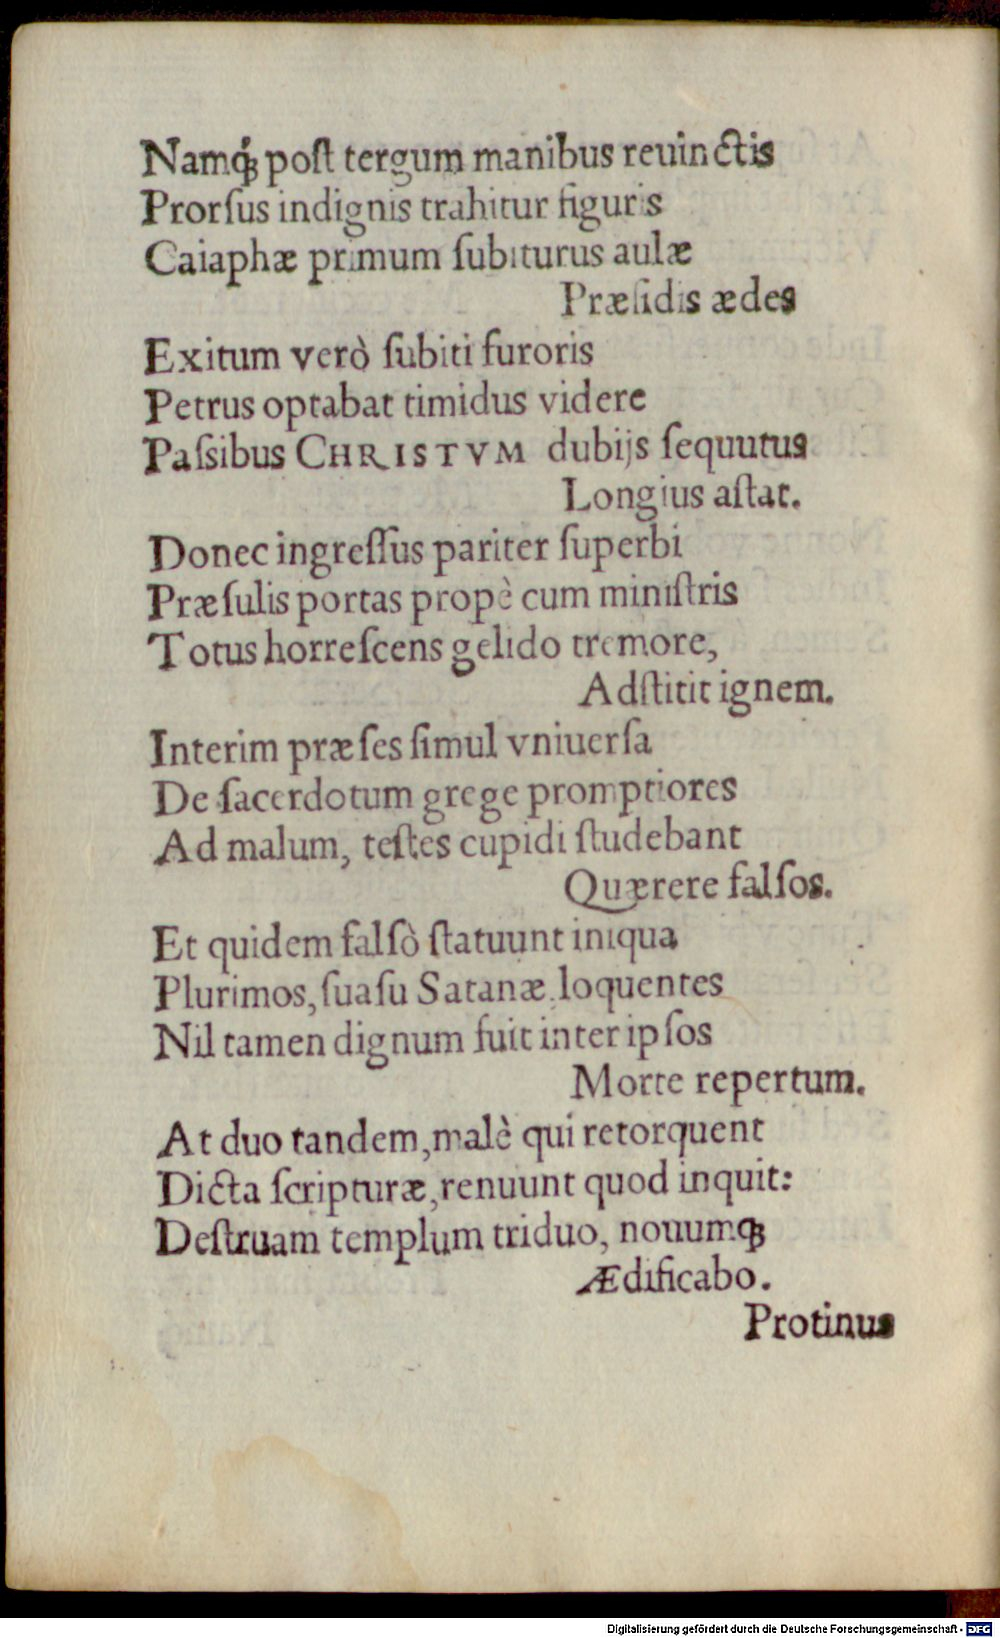 Namq́ꝫ poſt tergum manibus reuinctis
Prorſus indignis trahitur figuris
Caiaphæ primum ſubiturus aulæ
Præſidis ædes
Exitum verò ſubiti furoris
Petrus optabat timidus videre
Paſsibus CHRISTVM dubijs ſequutus
Longius aſtat.
Donec ingreſſus pariter ſuperbi
Præſulis portas propè cum miniſtris
Totus horreſcens gelido tremore,
Adſtitit ignem.
Interim præſes ſimul vniuerſa
De ſacerdotum grege promptiores
Ad malum, teſtes cupidi ſtudebant
Quærere falſos.
Et quidem falſò ſtatuunt iniqua
Plurimos, ſuaſu Satanæ loquentes
Nil tamen dignum fuit inter ipſos
Morte repertum.
At duo tandem, malè qui retorquent
Dicta ſcripturæ, renuunt quod inquit:
Deſtruam templum triduo, nouumqꝫ
Ædificabo.
Protinus
Digitalisierung gefördert durch die Deutsche Forschungsgemeinschaft - DFG